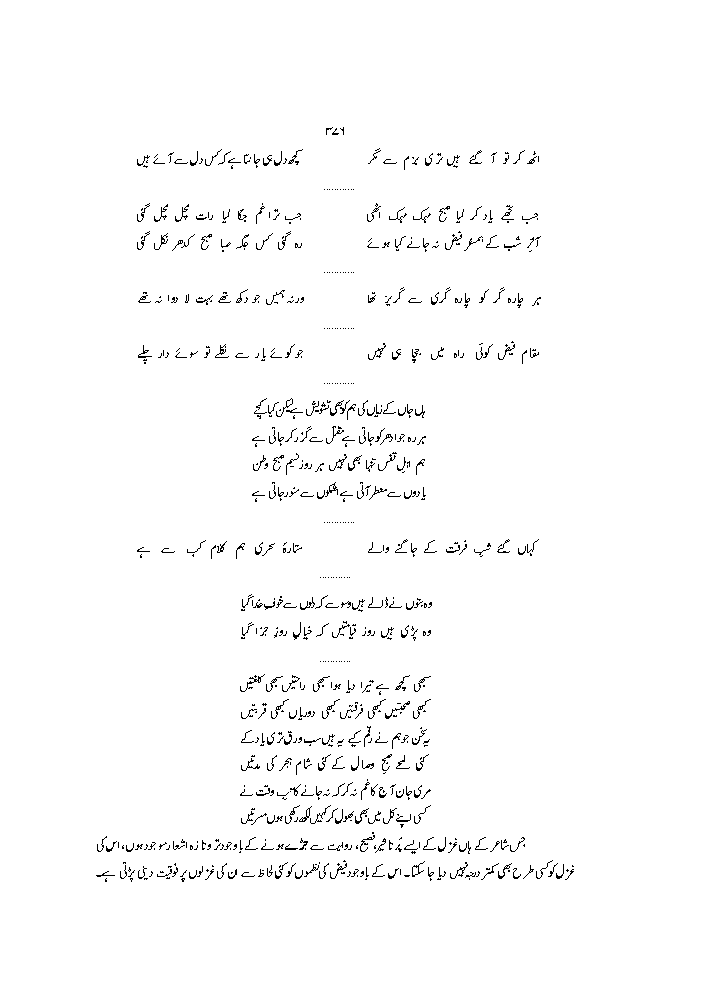 ۳۷۶
اٹھ کر تو آ گئے ہیں تری بزم سے مگر کچھ دل ہی جانتا ہے کہ کس دل سے آئے ہیں
............
جب تجھے یاد کر لیا صبح مہک مہک اٹھی جب ترا غم جگا لیا رات مچل مچل گئی
آخرِ شب کے ہمسفر فیض نہ جانے کیا ہوئے رہ گئی کس جگہ صبا صبح کدھر نکل گئی
............
ہر چارہ گر کو چارہ گری سے گریز تھا ورنہ ہمیں جو دکھ تھے بہت لا دوا نہ تھے
............
مقام فیض کوئی راہ میں جچا ہی نہیں جو کوئے یار سے نکلے تو سوئے دار چلے
............
ہاں جاں کے زیاں کی ہم کو بھی تشویش ہے لیکن کیا کیجے
ہر رہ جو ادھر کو جاتی ہے مقتل سے گزر کر جاتی ہے
ہم اہلِ قفس تنہا بھی نہیں ہر روز نسیمِ صبحِ وطن
یادوں سے معطر آتی ہے اشکوں سے منور جاتی ہے
............
کہاں گئے شبِ فرقت کے جاگنے والے ستارۂ سحری ہم کلام کب سے ہے
............
وہ بتوں نے ڈالے ہیں وسوسے کہ دلوں سے خوفِ خدا گیا
وہ پڑی ہیں روز قیامتیں کہ خیالِ روزِ جزا گیا
............
سبھی کچھ ہے تیرا دیا ہوا سبھی راحتیں سبھی کلفتیں
کبھی صحبتیں کبھی فرقتیں کبھی دوریاں کبھی قربتیں
یہ سخن جو ہم نے رقم کیے یہ ہیں سب ورق تری یاد کے
کئی لمحے صبحِ وصال کے کئی شامِ ہجر کی مدتیں
مری جان آج کا غم نہ کر کہ نہ جانے کاتبِ وقت نے
کسی اپنے کل میں بھی بھول کر کہیں لکھ رکھی ہوں مسرتیں
جس شاعر کے ہاں غزل کے ایسے پُر تاثیر، فصیح، روایت سے جڑے ہونے کے باوجود تر و تازہ اشعار موجود ہوں، اس کی
غزل کو کسی طرح بھی کمتر درجہ نہیں دیا جا سکتا۔ اس کے باوجود فیض کی نظموں کو کئی لحاظ سے ان کی غزلوں پر فوقیت دینی پڑتی ہے۔